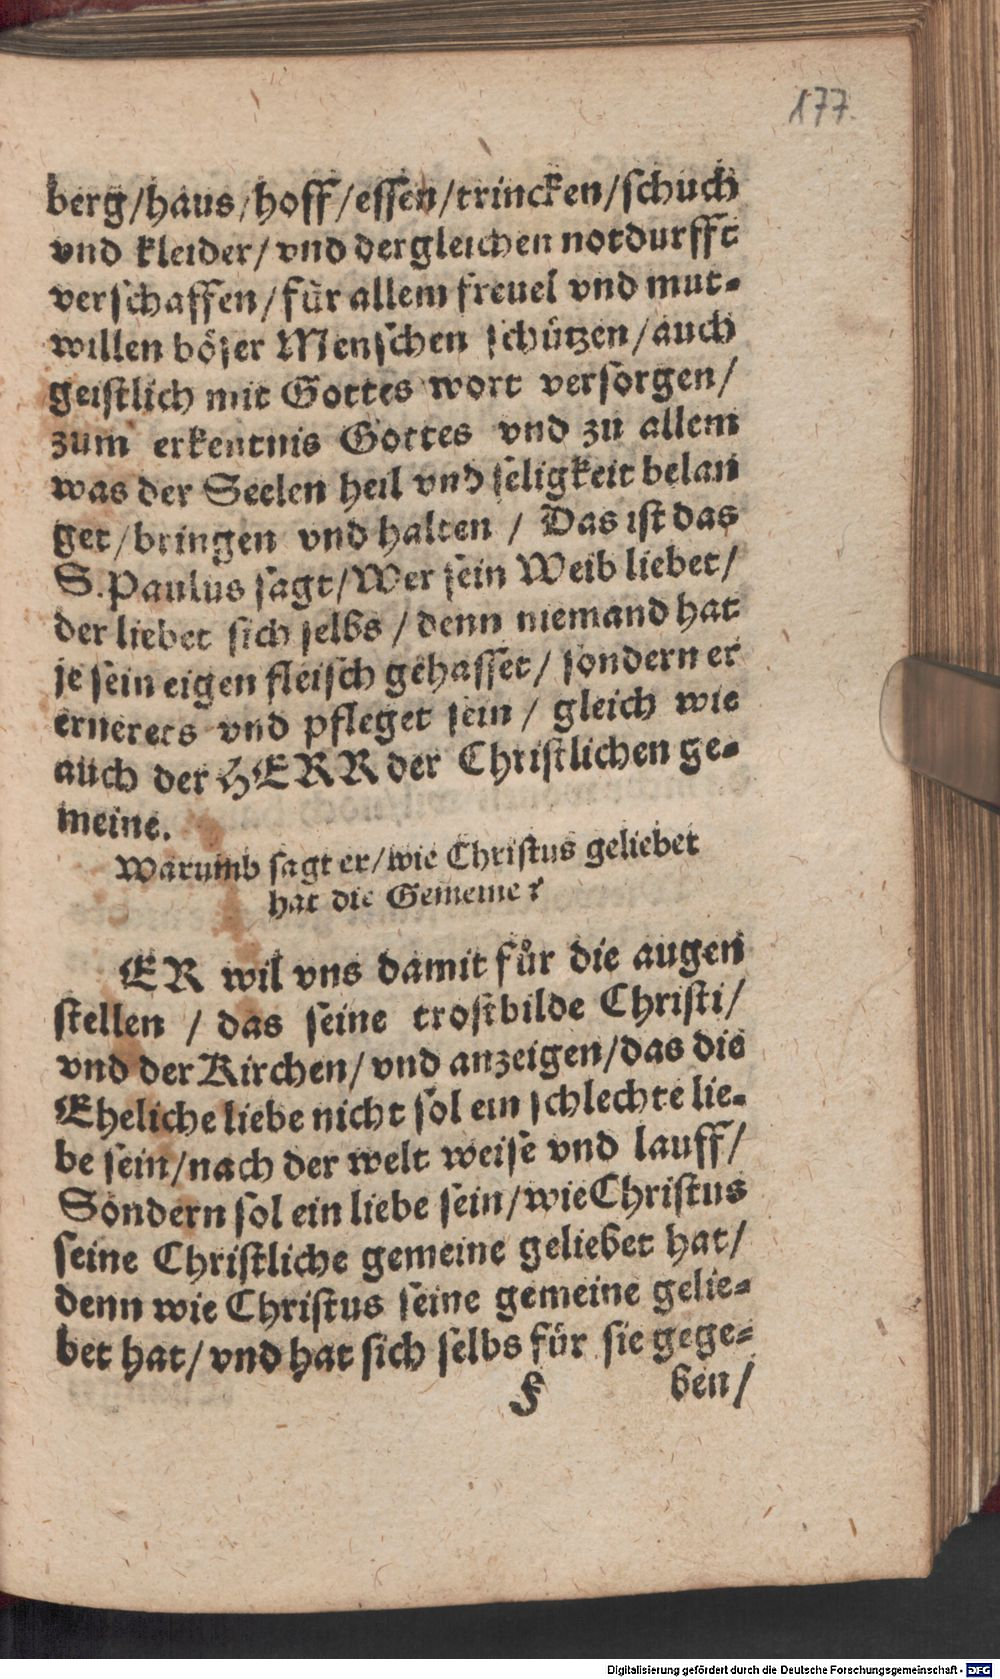 177.
berg/haus/hoff/essen/trincken/schuch
vnd kleider/vnd dergleichen notdurfft
verschaffen/für allem freuel vnd mut-
willen böser Menschen schützen/auch
geistlich mit Gottes wort versorgen/
zum erkentnis Gottes vnd zu allem
was der Seelen heil vnd seligkeit belan
get/bringen vnd halten / Das ist das
S. Paulus sagt/Wer sein Weib liebet/
der liebet sich selbs / denn niemand hat
je sein eigen fleisch gehasset/ sondern er
ernerets vnd pfleget sein / gleich wie
auch der HERR der Christlichen ge-
meine.
Warumb sagt er/wie Christus geliebet
hat die Gemeine?
ER wil vns damit für die augen
stellen / das seine trostbilde Christi/
vnd der Kirchen/vnd anzeigen/das die
Eheliche liebe nicht sol ein schlechte lie-
be sein/nach der welt weise vnd lauff/
Sondern sol ein liebe sein/wie Christus
seine Christliche gemeine geliebet hat/
denn wie Christus seine gemeine gelie-
bet hat/vnd hat sich selbs für sie gege-
f ben/
Digitalisierung gefördert durch die Deutsche Forschungsgemeinschaft - DFG